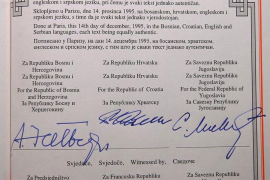 engleskom i srpskom jeziku, pri čemu je svaki tekst jednako autentičan.
Sklopljeno u Parizu, dne 14. prosinca 1995, na bosanskom, hrvatskom,
engleskom i srpskom jeziku, s time što je svaki tekst jednako
Done at Paris, this 14th day of December, 1995, in the Bosnian, Croatian, English and
Serbian languages, each text being equally authentic.
Потписано у Паризу, на дан 14. децембра 1995, на босанском, хрватском,
енглеском и српском језику, с тим што је сваки текст једнако аутентичан.
Za Republiku Bosnu i
Hercegovinu
Za Republiku Bosnu i
Hercegovinu
For the Republic of Bosnia
and Herzegovina
За Републику Босну и
Херцеговину
Za Republiku Hrvatsku
Za Republiku Hrvatsku
For the Republic of Croatia
За Републику Хрватску
Za Saveznu Republiku
Jugoslaviju
Za Saveznu Republiku
Jugoslaviju
For the Federal Republic of
Yugoslavia
За Савезну Републику
Југославију
Svjedoče, Svjedoče, Witnessed by, Сведоче
Za Predsjedništvo
Za Francusku Republiku
Za Saveznu Republiku